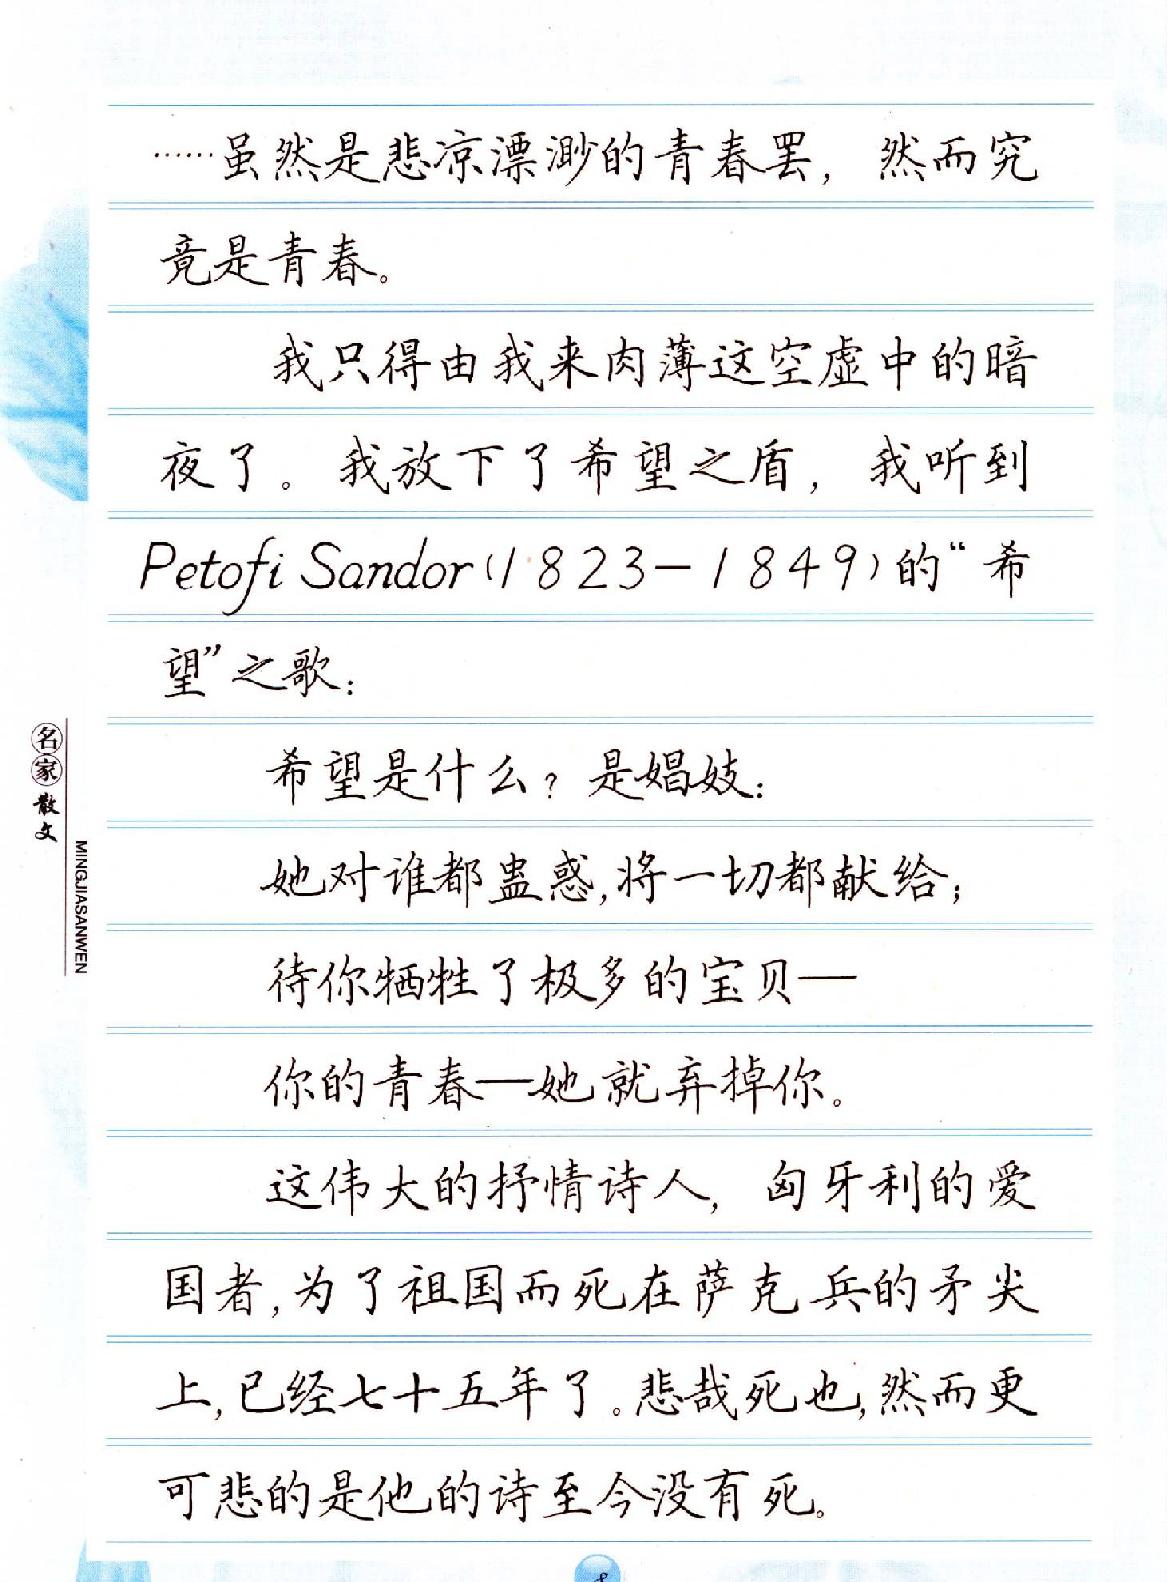 ……虽然是悲凉漂渺的青春罢，然而究
竟是青春。
我只得由我来肉薄这空虚中的暗
夜了。我放下了希望之盾，我听到
Petofi Sandor(1823-1849)的“希
望”之歌：
希望是什么？是娼妓：
她对谁都蛊惑，将一切都献给；
待你牺牲了极多的宝贝—
你的青春—她就弃掉你。
这伟大的抒情诗人，匈牙利的爱
国者，为了祖国而死在萨克兵的矛尖
上，已经七十五年了。悲哉死也，然而更
可悲的是他的诗至今没有死。
名家散文
MINGJIASANWEN